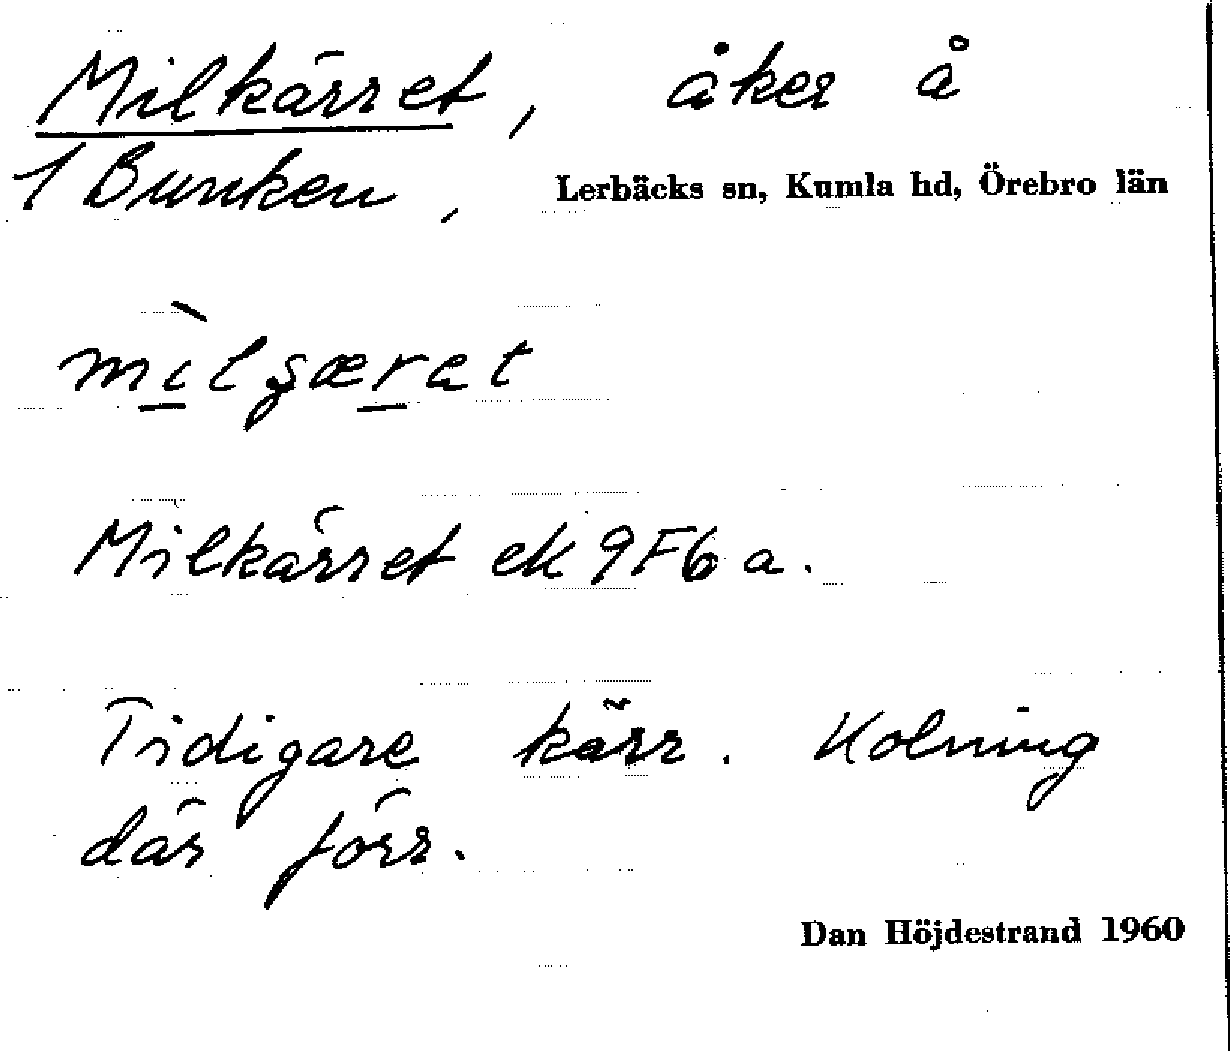 Milkärret, åker å
1 Bunken, Lerbäcks sn, Kumla hd, Örebro län
mìlʂærat
Milkärret ek 9F6a.
Tidigare kärr. Kolning
där förr.
Dan Höjdestrand 1960